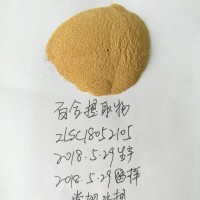 百合提取物
ZLSC18052105
2018.5.29生产
2018.5.29留样